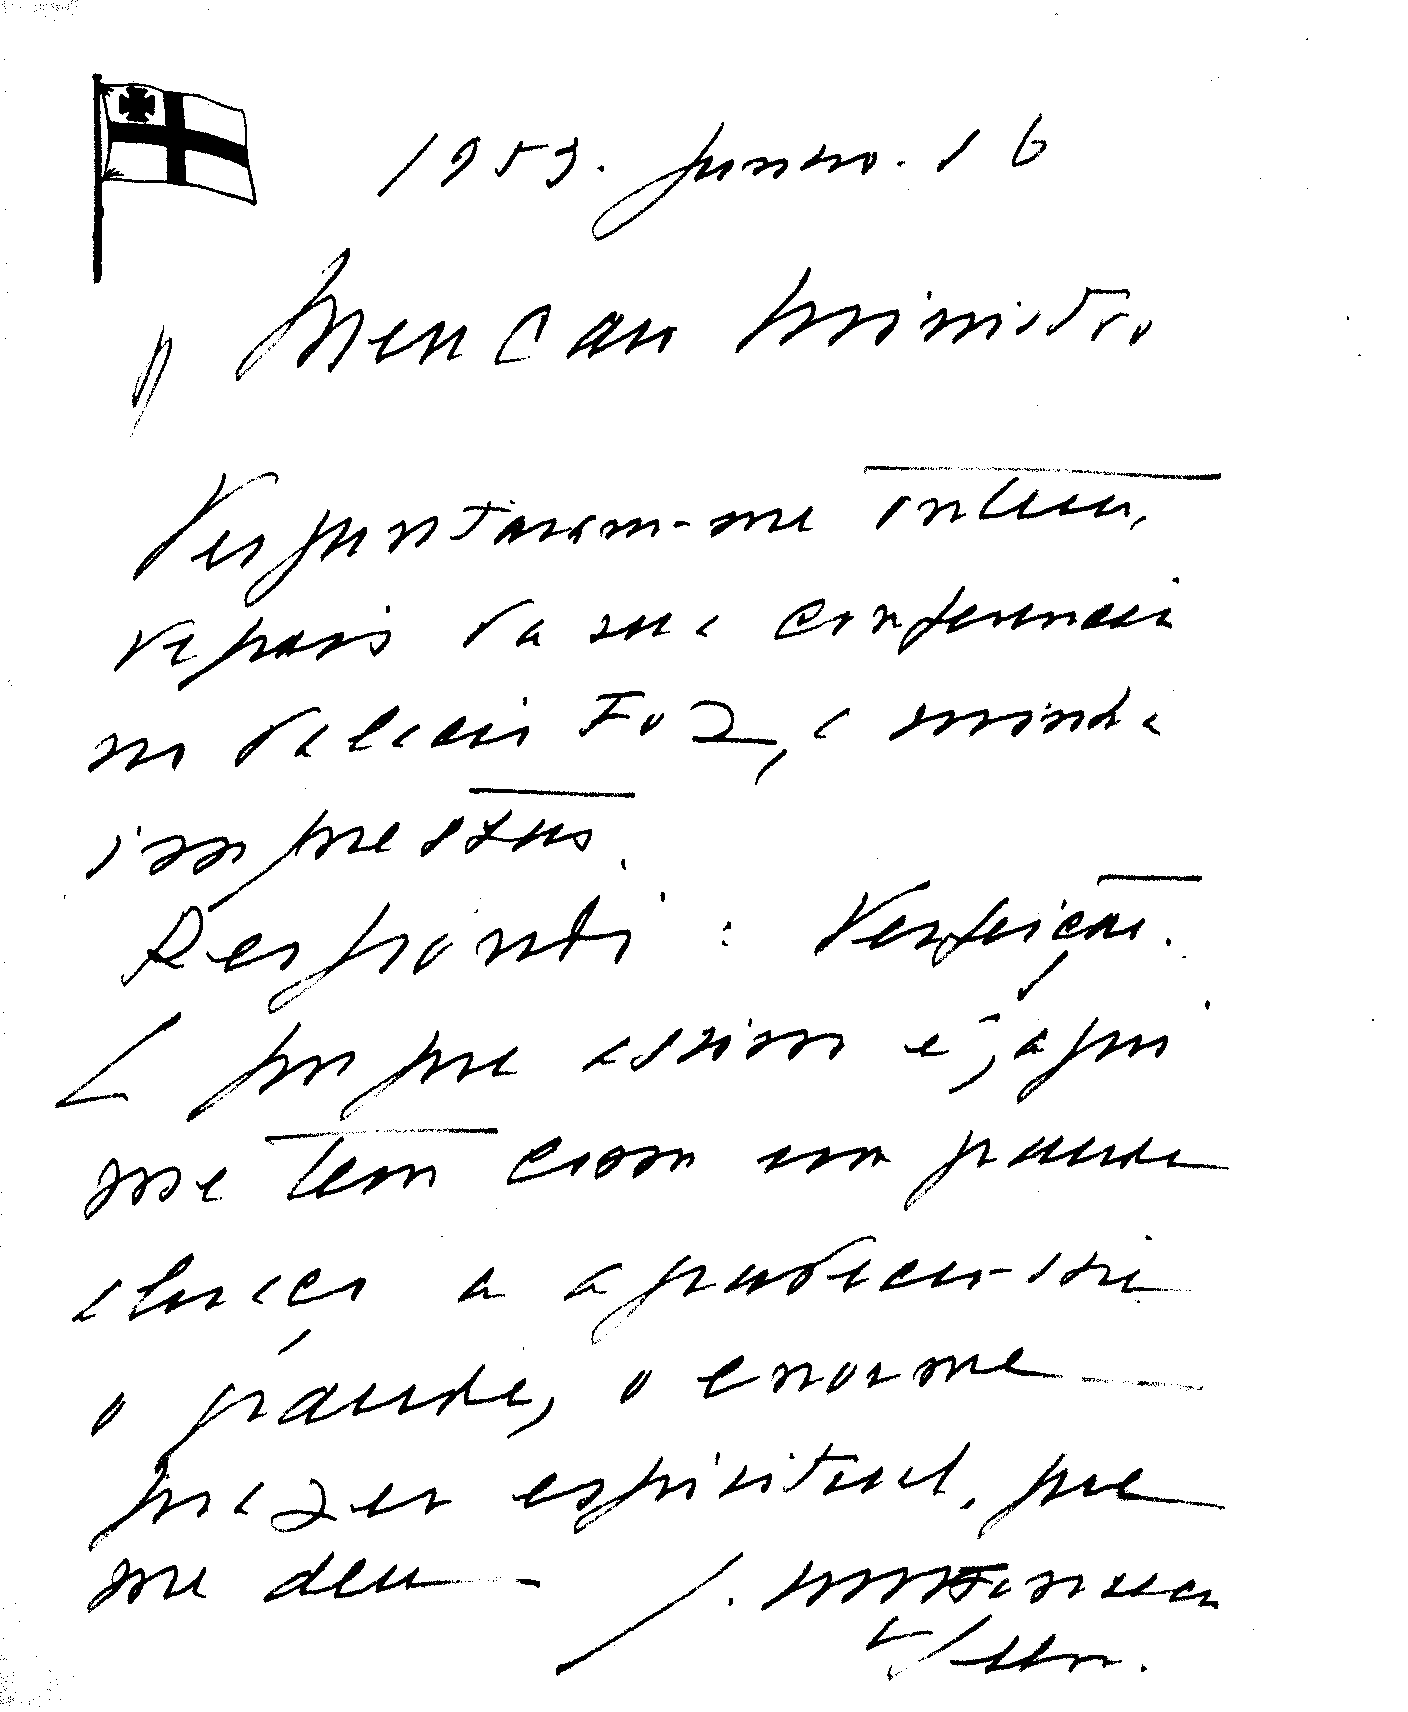 1953. Junho. 16
Meu caro Ministro
Perguntaram-me ontem,
depois da sua conferencia
no Palacio Foz, a minha
impressão.
Respondi: Perfeição.
E porque assim é, aqui
me tem com um grande
abraço a agradecer-lhe
o grande, o enorme
prazer espiritual, que
me deu -